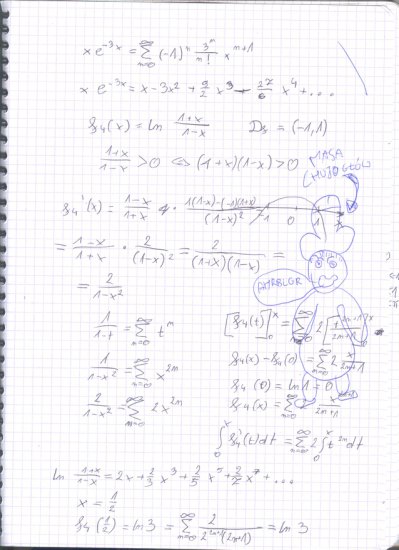 x e^{-3x} = \sum_{n=0}^{\infty} (-1)^n \frac{3^n}{n!} x^{n+1}
x e^{-3x} = x - 3x^2 + \frac{9}{2} x^3 - \frac{27}{6} x^4 + ...
f_4(x) = ln \frac{1+x}{1-x} D_{f_4} = (-1,1)
\frac{1+x}{1-x} > 0 ⇔ (1+x)(1-x) > 0
MASA
f_4'(x) = \frac{1-x}{1+x} · \frac{1(1-x)-(-1)(1+x)}{(1-x)^2} -1 0 1
= \frac{1-x}{1+x} · \frac{2}{(1-x)^2} = \frac{2}{(1+x)(1-x)} =
= \frac{2}{1-x^2}
\frac{1}{1-t} = \sum_{n=0}^{\infty} t^n
\frac{1}{1-x^2} = \sum_{n=0}^{\infty} x^{2n}
\frac{2}{1-x^2} = \sum_{n=0}^{\infty} 2x^{2n}
[f_4(t)]_0^x = \sum_{n=0}^{\infty} 2 [\frac{t^{2n+1}}{2n+1}]_0^x
f_4(x) - f_4(0) = \sum_{n=0}^{\infty} 2 \frac{x^{2n+1}}{2n+1}
f_4(0) = ln 1 = 0
f_4(x) = \sum_{n=0}^{\infty}
\int_0^x f_4'(t)dt = \sum_{n=0}^{\infty} 2 \int_0^x t^{2n} dt
ln \frac{1+x}{1-x} = 2x + \frac{2}{3} x^3 + \frac{2}{5} x^5 + \frac{2}{7} x^7 + ...
x = \frac{1}{2}
f_4(\frac{1}{2}) = ln 3 = \sum_{n=0}^{\infty} \frac{2}{2^{2n+1}(2n+1)} = ln 3